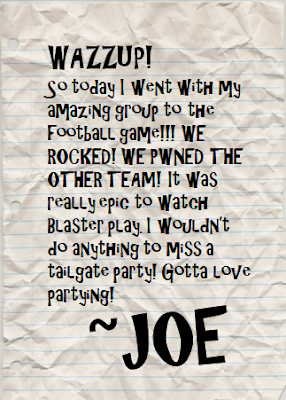 WAZZUP!
So today I went with my
amazing group to the
Football game!!! WE
ROCKED! WE PWNED THE
OTHER TEAM! It was
really epic to watch
Blaster play. I wouldn't
do anything to miss a
tailgate party! Gotta love
partying!
~JOE